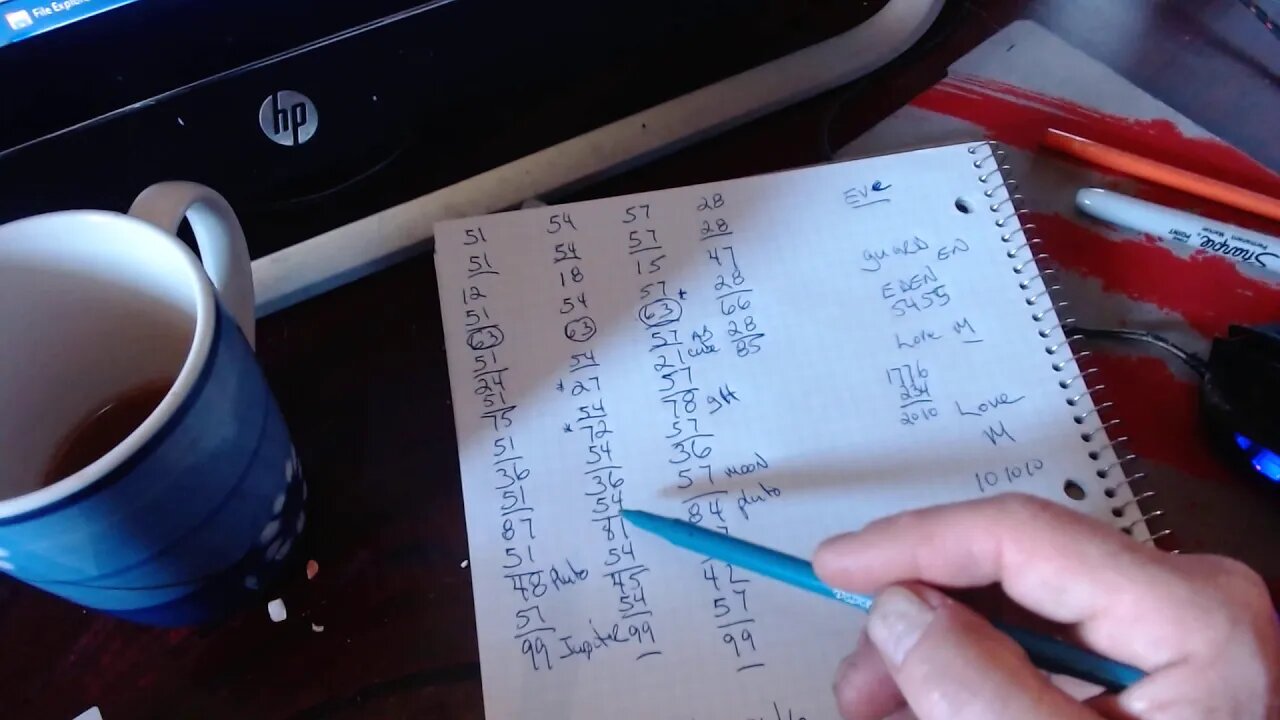 File Explor
hp
51
51
12
51
63
51
24
51
75
51
36
51
87
51
48 Pluto
57
99 Jupiter
54
54
18
54
63
54
* 27
54
* 72
54
36
54
81
54
45
54
99
57
57
15
57
63 *
57
21 cube
57
78 9#
57
36
57 moon
84 pluto
42
57
99
28
28
47
28
66
28
85
Eve
guard EN
EDEN
5455
Love M
1776
234
2010 Love
M
101010
Sharpie